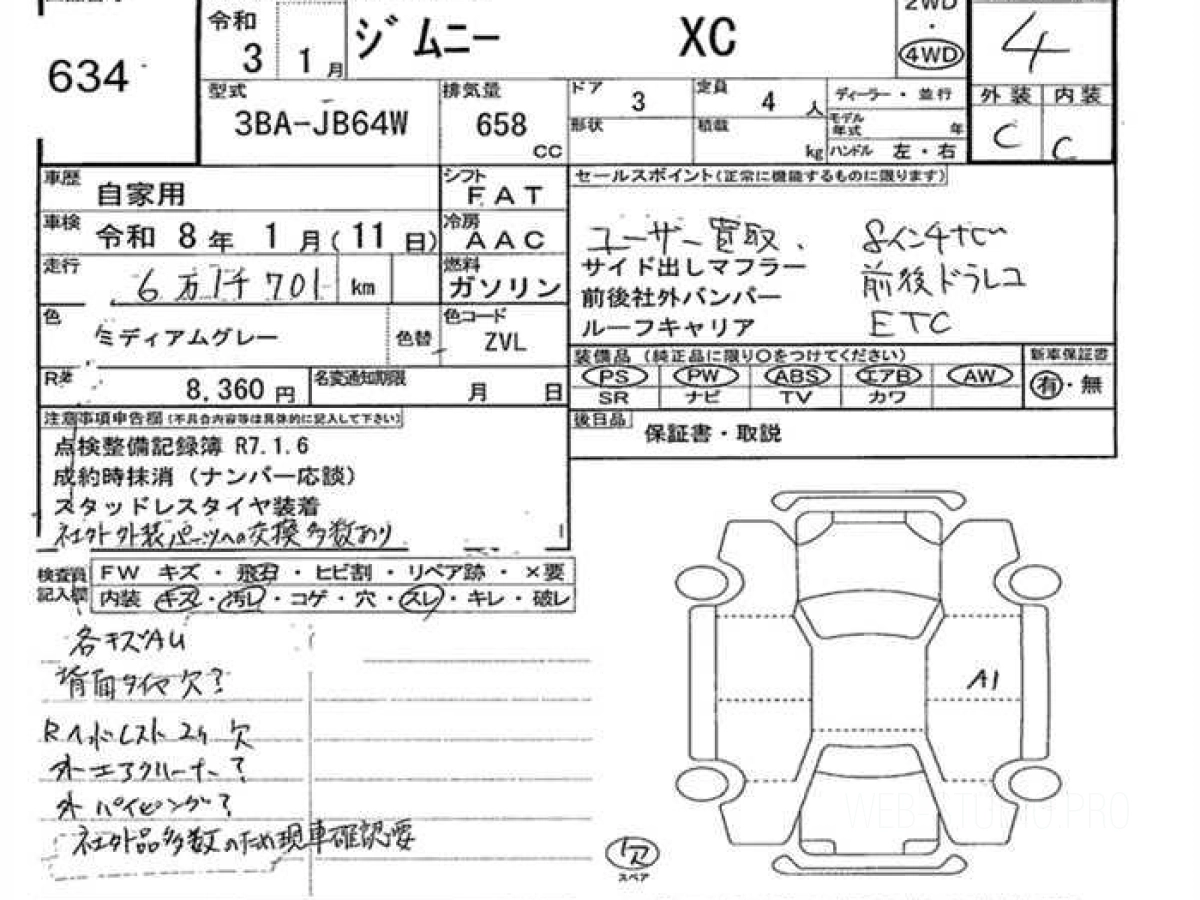 634
令和 3 1月 ジムニー XC
2WD・4WD
4
型式 3BA-JB64W
排気量 658 cc
ドア 3
定員 4 人
形状
積載 kg
ディーラー・並行
モデル年式 年
ハンドル 左・右
外装 内装
C C
車歴 自家用
シフト FAT
車検 令和 8年 1月(11日)
冷房 AAC
走行 6万1千701 km
燃料 ガソリン
色 ミディアムグレー 色替
色コード ZVL
R券 8,360円
名変通知期限 月 日
セールスポイント(正常に機能するものに限ります)
ユーザー買取、 8インチナビ
サイド出しマフラー 前後ドラレコ
前後社外バンパー
ルーフキャリア ETC
装備品 (純正品に限り○をつけてください) 新車保証書
PS PW ABS エアB AW 有・無
SR ナビ TV カワ
後日品 保証書・取説
注意事項申告欄(不具合内容等は具体的に記入して下さい)
点検整備記録簿 R7.1.6
成約時抹消 (ナンバー応談)
スタッドレスタイヤ装着
社外外装パーツへの交換多数あり
検査員記入欄
FW キズ・飛石・ヒビ割・リペア跡・×要
内装 キズ・汚レ・コゲ・穴・スレ・キレ・破レ
各キズAU
背面タイヤ欠?
Rヘッドレスト2ケ欠
外エアクリーナー?
外パイピング?
社外品多数のため現車確認要
A1
欠
スペア
WEB-STUDIO.PRO